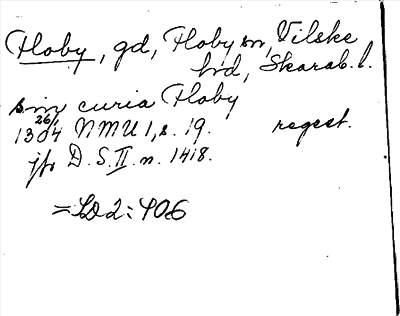 Floby, gd, Floby sn, Vilske
hrd, Skarab. l.
s. in curia Floby
26/1
1304 NMU 1, s. 19. regest.
jfr D. S. II. n. 1418.
= SD 2: 406